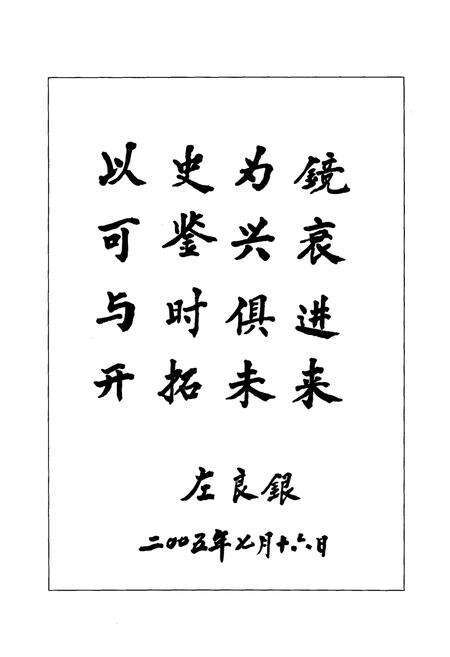 以史为镜
可鉴兴衰
与时俱进
开拓未来
左良銀
二〇〇五年七月十六日